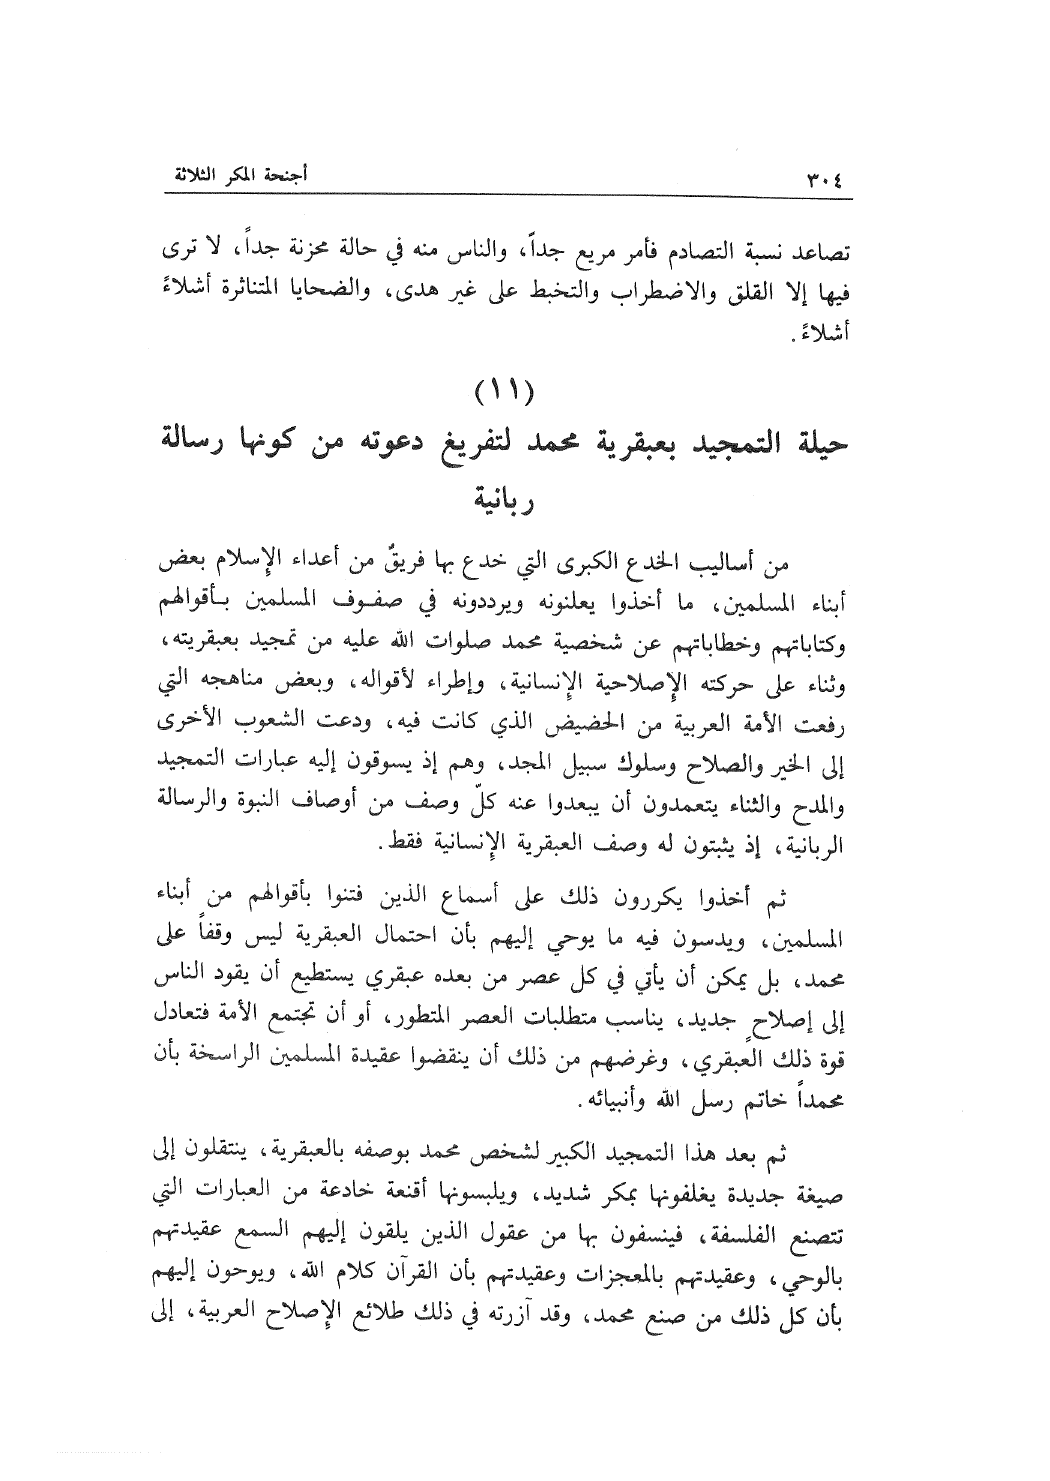 ٣٠٤ أجنحة المكر الثلاثة
تصاعد نسبة التصادم فأمر مريع جداً، والناس منه في حالة محزنة جداً، لا ترى
فيها إلا القلق والاضطراب والتخبط على غير هدى، والضحايا المتناثرة أشلاءً
أشلاءً.
(١١)
حيلة التمجيد بعبقرية محمد لتفريغ دعوته من كونها رسالة
ربانية
من أساليب الخدع الكبرى التي خدع بها فريقٌ من أعداء الإسلام بعض
أبناء المسلمين، ما أخذوا يعلنونه ويرددونه في صفوف المسلمين بأقوالهم
وكتاباتهم وخطاباتهم عن شخصية محمد صلوات الله عليه من تمجيد بعبقريته،
وثناء على حركته الإصلاحية الإنسانية، وإطراء لأقواله، وبعض مناهجه التي
رفعت الأمة العربية من الحضيض الذي كانت فيه، ودعت الشعوب الأخرى
إلى الخير والصلاح وسلوك سبيل المجد، وهم إذ يسوقون إليه عبارات التمجيد
والمدح والثناء يتعمدون أن يبعدوا عنه كلّ وصف من أوصاف النبوة والرسالة
الربانية، إذ يثبتون له وصف العبقرية الإنسانية فقط.
ثم أخذوا يكررون ذلك على أسماع الذين فتنوا بأقوالهم من أبناء
المسلمين، ويدسون فيه ما يوحي إليهم بأن احتمال العبقرية ليس وقفاً على
محمد، بل يمكن أن يأتي في كل عصر من بعده عبقري يستطيع أن يقود الناس
إلى إصلاحٍ جديد، يناسب متطلبات العصر المتطور، أو أن تجتمع الأمة فتعادل
قوة ذلك العبقري، وغرضهم من ذلك أن ينقضوا عقيدة المسلمين الراسخة بأن
محمداً خاتم رسل الله وأنبيائه.
ثم بعد هذا التمجيد الكبير لشخص محمد بوصفه بالعبقرية، ينتقلون إلى
صيغة جديدة يغلفونها بمكر شديد، ويلبسونها أقنعة خادعة من العبارات التي
تتصنع الفلسفة، فينسفون بها من عقول الذين يلقون إليهم السمع عقيدتهم
بالوحي، وعقيدتهم بالمعجزات وعقيدتهم بأن القرآن كلام الله، ويوحون إليهم
بأن كل ذلك من صنع محمد، وقد آزرته في ذلك طلائع الإصلاح العربية، إلى